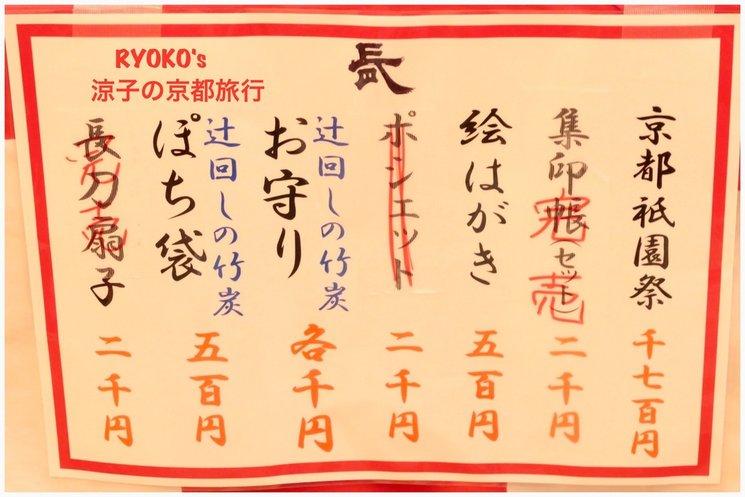 RYOKO's
涼子の京都旅行
京都祇園祭 千七百円
集印帳(セット) 二千円
完売
絵はがき 五百円
ポシェット 二千円
辻回しの竹炭
お守り 各千円
辻回しの竹炭
ぽち袋 五百円
長刀扇子 二千円